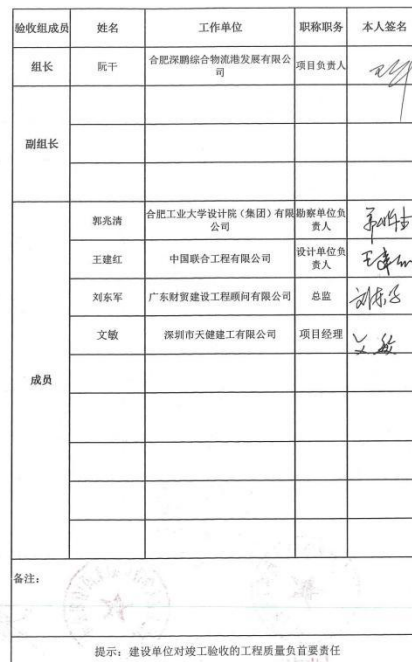 验收组成员 姓名 工作单位 职称职务 本人签名
组长 阮干 合肥深鹏综合物流港发展有限公司 项目负责人
副组长
成员
郭兆清 合肥工业大学设计院（集团）有限公司 勘察单位负责人
王建红 中国联合工程有限公司 设计单位负责人
刘东军 广东财贸建设工程顾问有限公司 总监
文敏 深圳市天健建工有限公司 项目经理 文敏
备注：
提示：建设单位对竣工验收的工程质量负首要责任